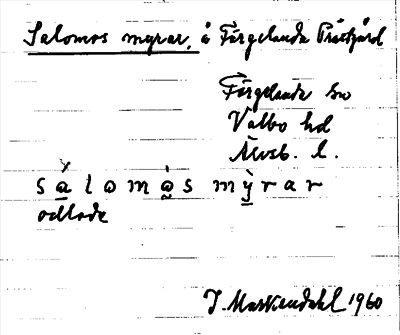 Salomos myrar, å Färgelanda Prästgård
Färgelanda sn
Valbo hd
Älvsb. l.
sàlomo̱s mỳrar
odlade
1960